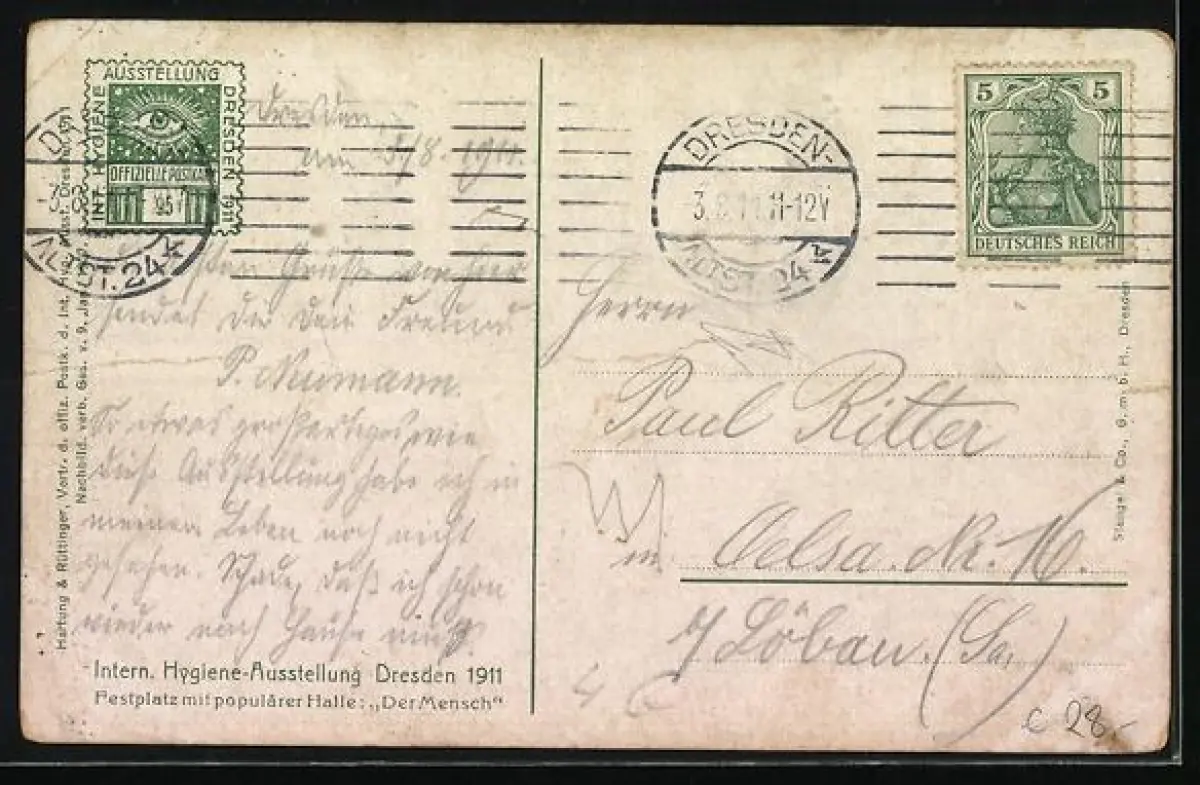 AUSSTELLUNG
INT. HYGIENE
DRESDEN 1911
OFFIZIELLE POSTKARTE
95
Dresden,
am 3/8. 1911.
DRESDEN-
3.8.11.11-12V
ALTST. 24
5 5
DEUTSCHES REICH
ALTST. 24
Grüße von hier
sendet dir dein Freund
P. Neumann.
So etwas großartiges wie
diese Ausstellung habe ich in
meinem Leben noch nicht
gesehen. Schade, daß ich schon
wieder nach Hause muß.
Intern. Hygiene-Ausstellung Dresden 1911
Festplatz mit populärer Halle: „Der Mensch“
Hartung & Rüttinger, Vertr. d. offiz. Postk. d. Int. Hyg. Ausst. Dresden 1911
Nachbild. verb. Ges. v. 9. Jan.
Herrn
Paul Ritter
W
in Oelsa. Nr. 16.
b/ Löbau. (Sa.)
Stengel & Co., G. m. b. H., Dresden
c 28.-